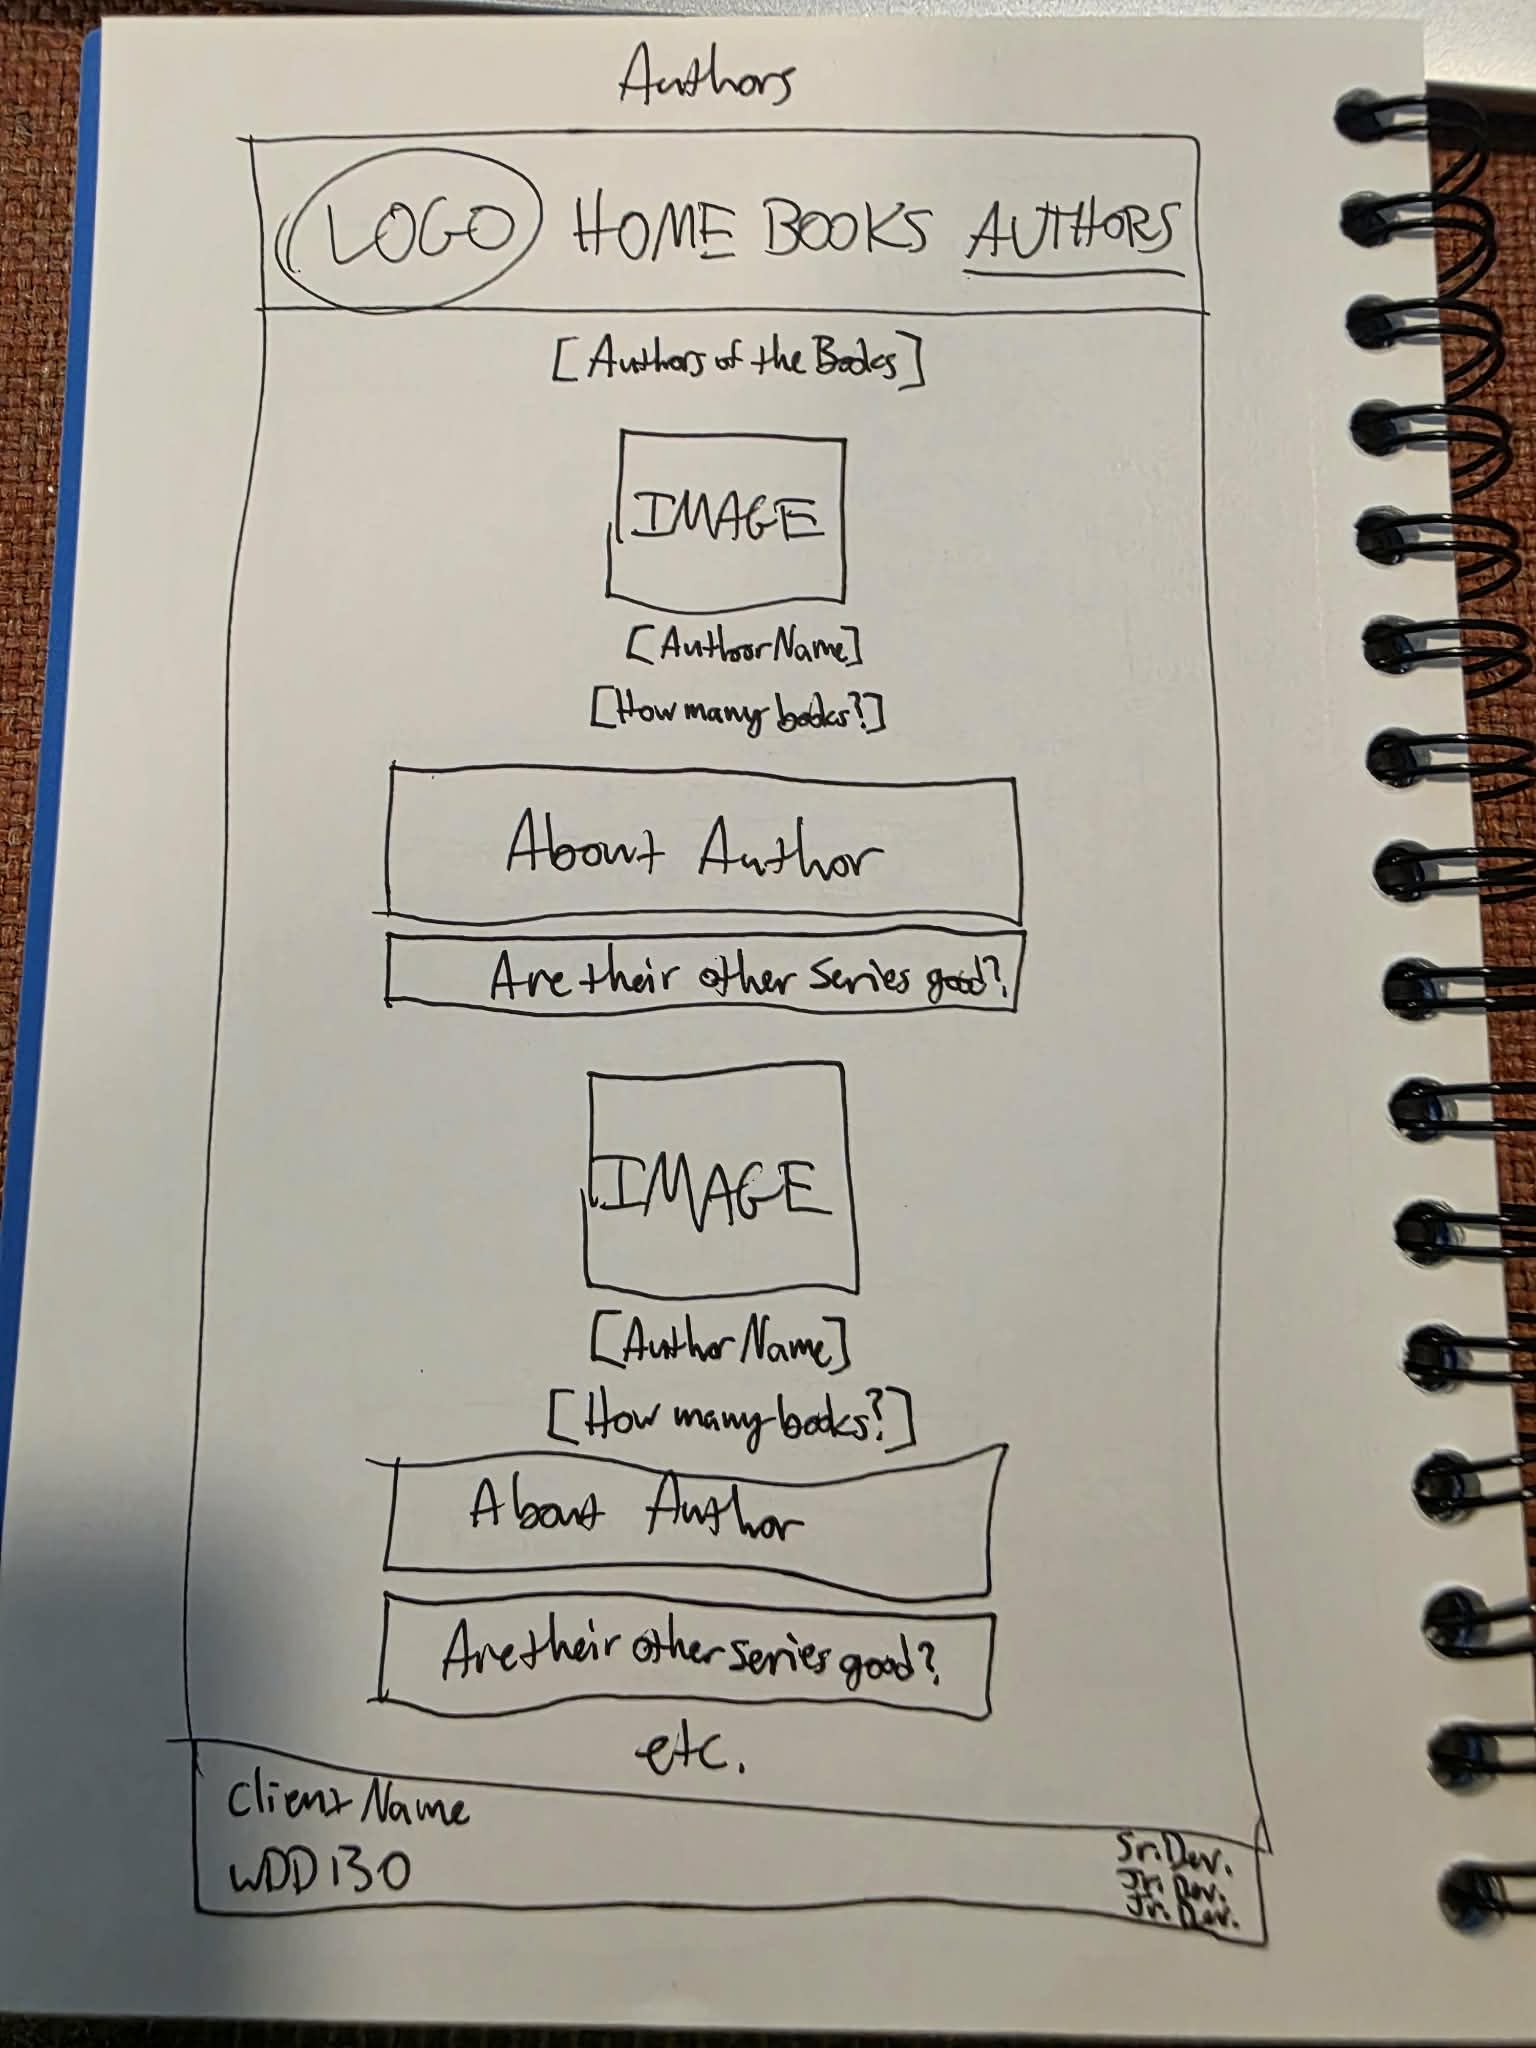 Authors
LOGO HOME BOOKS AUTHORS
[Authors of the Books]
IMAGE
[Author Name]
[How many books?]
About Author
Are their other series good?
IMAGE
[Author Name]
[How many books?]
About Author
Are their other series good?
etc.
Client Name
WDD 130
Sr. Dev.
Jr. Dev.
Jr. Dev.